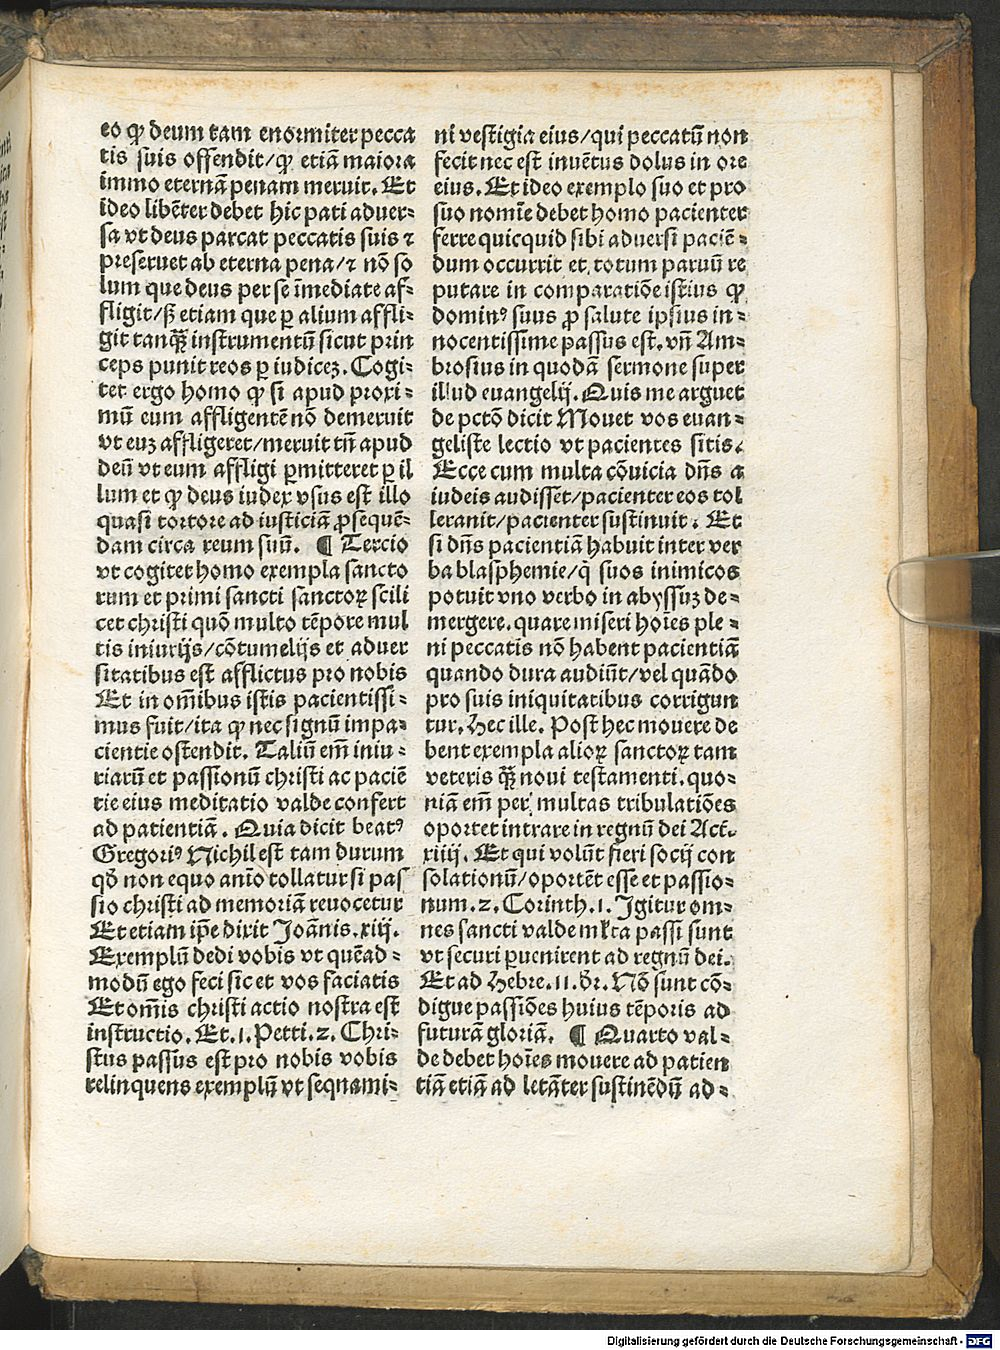 eo ꝙ deum tam enormiter pecca
tis suis offendit/ꝙ etiā maiora
immo eternā penam meruit. Et
ideo libēter debet hic pati aduer⸗
sa vt deus parcat peccatis suis ⁊
preseruet ab eterna pena/⁊ nō so
lum que deus per se īmediate af⸗
fligit/sꝫ etiam que ꝑ alium affli⸗
git tanꝙ̄ instrumentū sicut prin
ceps punit reos ꝑ iudiceꝫ. Cogi⸗
tet ergo homo ꝙ si apud proxi⸗
mū eum affligentē nō demeruit
vt euꝫ affligeret/meruit tn̄ apud
deū vt eum affligi ꝑmitteret ꝑ il
lum et ꝙ deus iudex vsus est illo
quasi tortore ad iusticiā ꝓsequē⸗
dam circa reum suū. ¶ Tercio
vt cogitet homo exempla sancto
rum et primi sancti sanctoꝝ scili
cet christi quō multo tēpore mul
tis iniurijs/cōtumelijs et aduer
sitatibus est afflictus pro nobis
Et in om̄ibus istis pacientissi⸗
mus fuit/ita ꝙ nec signū impa⸗
cientie ostendit. Taliū em̄ iniu⸗
riarū et passionū christi ac paciē
tie eius meditatio valde confert
ad patientiā. Quia dicit beatꝰ
Gregoriꝰ Nichil est tam durum
qd̄ non equo anīo tollatur si pas
sio christi ad memoriā reuocetur
Et etiam ip̄e dixit Joānis.xiij.
Exemplū dedi vobis vt quēad⸗
modū ego feci sic et vos faciatis
Et om̄is christi actio nostra est
instructio. Et.1.Petri.2. Chri⸗
stus passus est pro nobis vobis
relinquens exemplū vt seqnami⸗
ni vestigia eius/qui peccatū non
fecit nec est inuētus dolus in ore
eius. Et ideo exemplo suo et pro
suo nomīe debet homo pacienter
ferre quicquid sibi aduersi paciē⸗
dum occurrit et totum paruū re
putare in comparatiōe istius ꝙ
dominꝰ suus ꝓ salute ipsius in⸗
nocentissime passus est. vn̄ Am⸗
brosius in quodā sermone super
illud euangelij. Quis me arguet
de pctō dicit Mouet vos euan⸗
geliste lectio vt pacientes sitis.
Ecce cum multa cōuicia dn̄s a
iudeis audissēt/pacienter eos tol
leranit/pacienter sustinuit. Et
si dn̄s pacientiā habuit inter ver
ba blasphemie/q̄ suos inimicos
potuit vno verbo in abyssuꝫ de⸗
mergere. quare miseri hoīes ple⸗
ni peccatis nō habent pacientiā
quando dura audiūt/vel quādo
pro suis iniquitatibus corrigun
tur. Hec ille. Post hec mouere de
bent exempla alioꝝ sanctoꝝ tam
veteris ꝙ̄ noui testamenti. quo⸗
niā em̄ per multas tribulatiōes
oportet intrare in regnū dei Act.
xiiij. Et qui volūt fieri socij con
solationū/oportēt esse et passio⸗
num.2. Corinth.1. Igitur om⸗
nes sancti valde ml̄ta passi sunt
vt securi ꝑuenirent ad regnū dei.
Et ad Hebre.11.dr̄. Nō sunt cō⸗
digue passiōes huius tēporis ad
futurā gloriā. ¶ Quarto val⸗
de debet hoīes mouere ad patien
tiā etiā ad letāter sustinēdū ad⸗
Digitalisierung gefördert durch die Deutsche Forschungsgemeinschaft - DFG